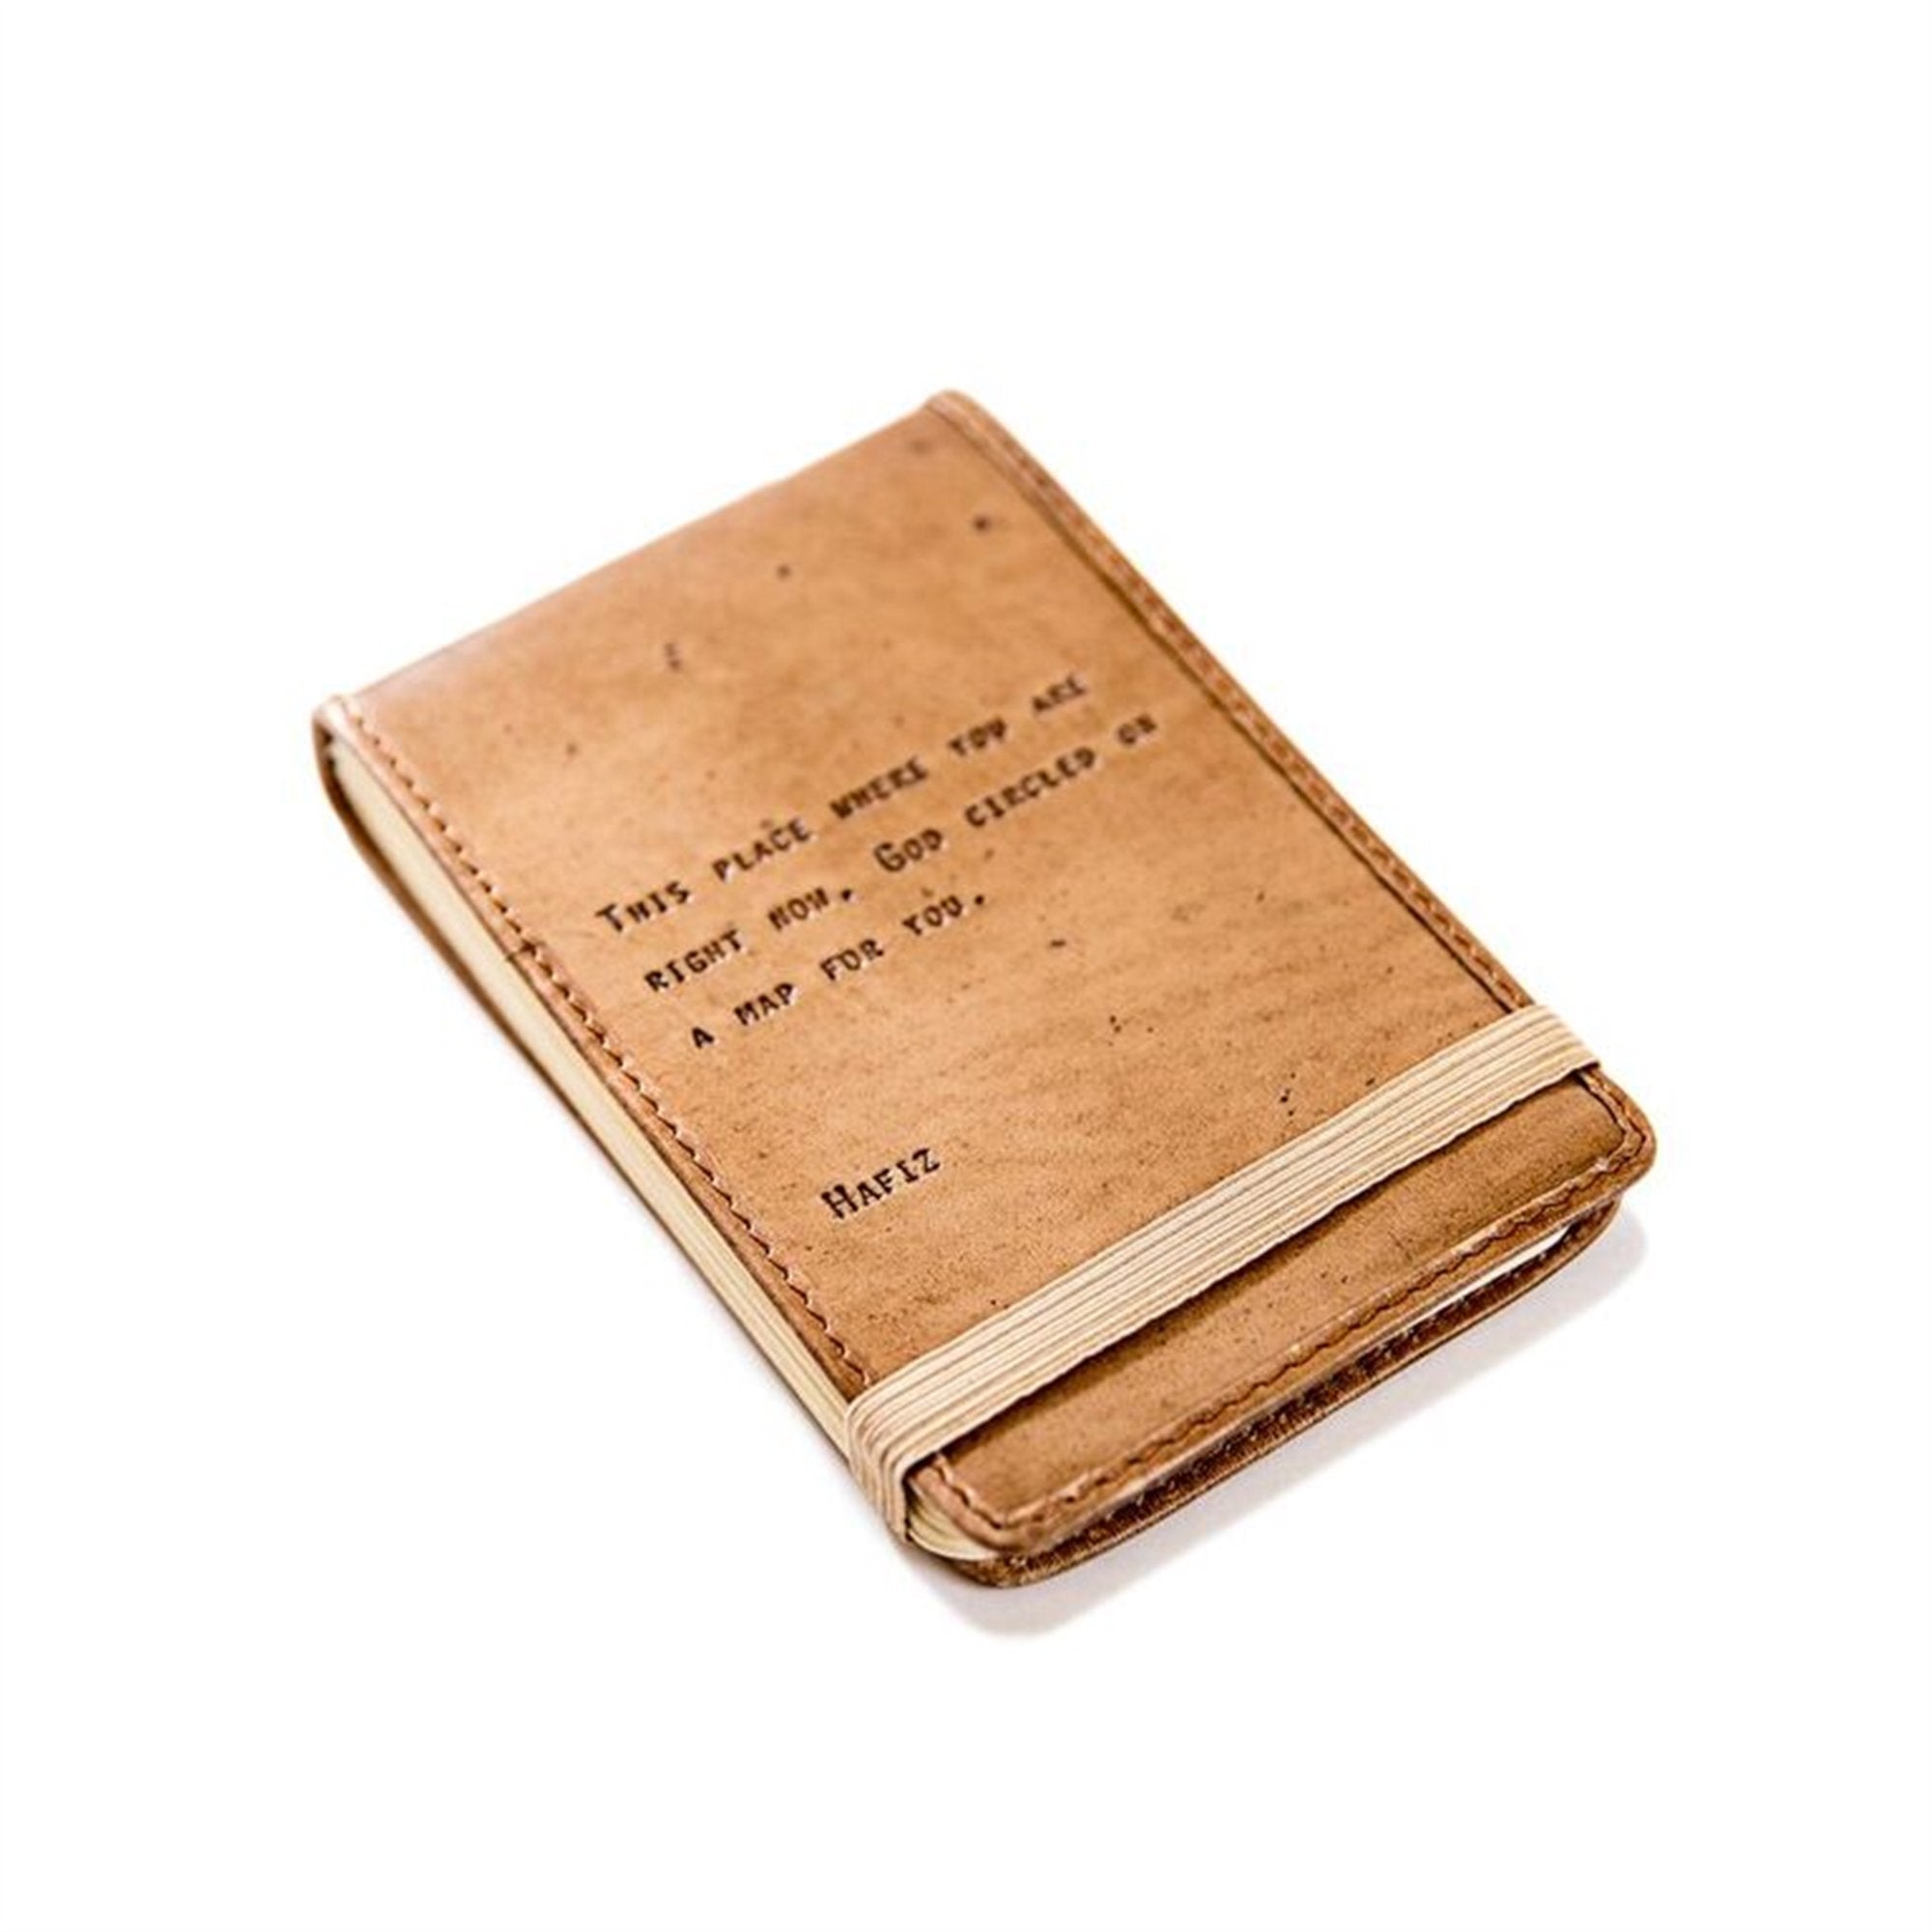 This place where you are
right now, God circled on
a map for you.
Hafiz